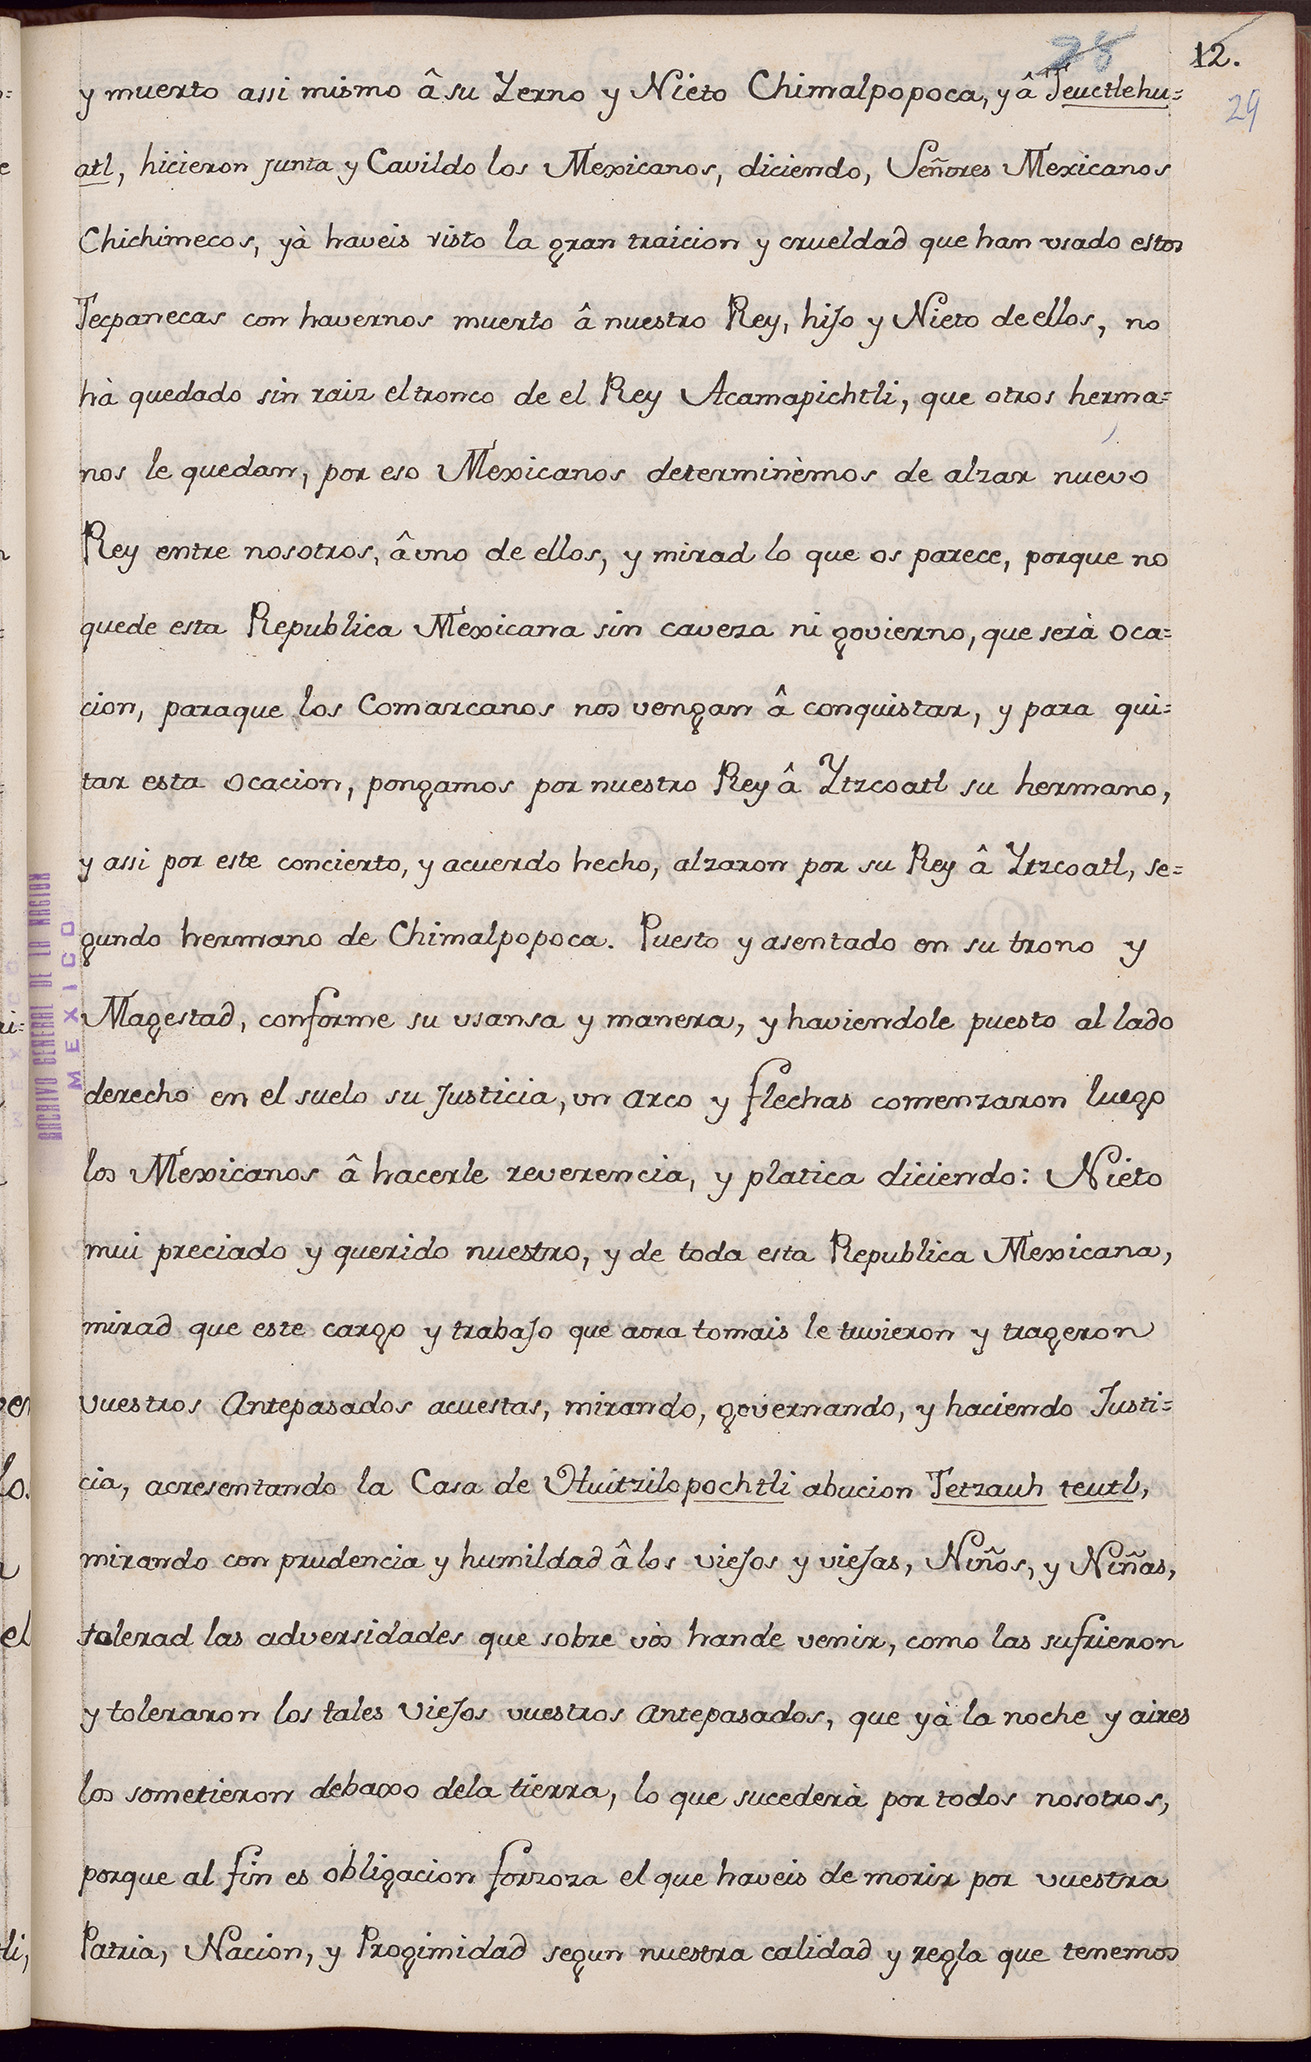 28 12.
29
y muerto assi mismo â su Yerno y Nieto Chimalpopoca, y â Teuctlehu=
atl, hicieron junta y Cavildo los Mexicanos, diciendo, Señores Mexicanos
Chichimecos, yà haveis visto la gran traicion y crueldad que han vsado estos
Tecpanecas con havernos muerto â nuestro Rey, hijo y Nieto de ellos, no
hà quedado sin raiz el tronco de el Rey Acamapichtli, que otros herma=
nos le quedan, por eso Mexicanos determinèmos de alzar nuevo
Rey entre nosotros, â vno de ellos, y mirad lo que os parece, porque no
quede esta Republica Mexicana sin caveza ni govierno, que serà oca=
cion, paraque los Comarcanos nos vengan â conquistar, y para qui=
tar esta ocacion, pongamos por nuestro Rey â Ytzcoatl su hermano,
y assi por este concierto, y acuerdo hecho, alzaron por su Rey â Ytzcoatl, se=
gundo hermano de Chimalpopoca. Puesto y asentado en su trono y
Magestad, conforme su vsansa y manera, y haviendole puesto al lado
derecho en el suelo su Justicia, vn arco y flechas comenzaron luego
los Mexicanos â hacerle reverencia, y platica diciendo: Nieto
mui preciado y querido nuestro, y de toda esta Republica Mexicana,
mirad que este cargo y trabajo que aora tomais le tuvieron y trageron
vuestros Antepasados acuestas, mirando, governando, y haciendo Justi=
cia, acresentando la Casa de Huitzilopochtli abucion Tetzauh teutl,
mirando con prudencia y humildad â los viejos y viejas, Niños, y Niñas,
tolerad las adversidades que sobre vòs hande venir, como las sufrieron
y toleraron los tales Viejos vuestros Antepasados, que yà la noche y aires
los sometieron debaxo dela tierra, lo que sucederà por todos nosotros,
porque al fin es obligacion forzoza el que haveis de morir por vuestra
Patria, Nacion, y Progimidad segun nuestra calidad y regla que tenemos
ARCHIVO GENERAL DE LA NACION
MEXICO